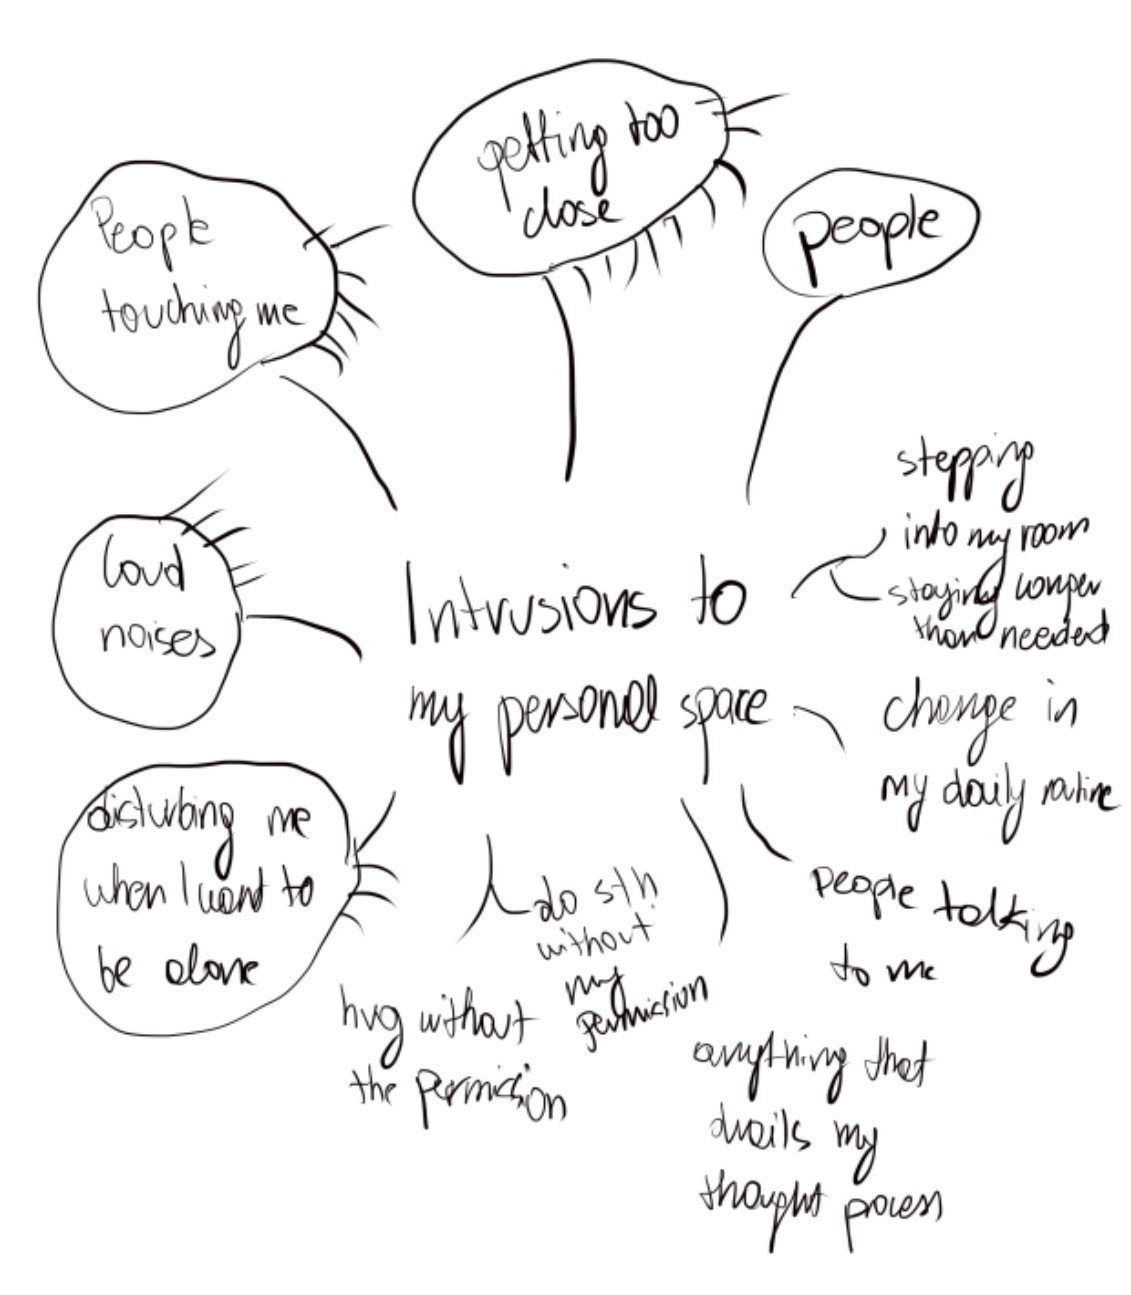 getting too
close
People
touching me
people
stepping
into my room
staying longer
than needed
loud
noises
Intrusions to
my personal space
change in
my daily routine
disturbing me
when I want to
be alone
do sth
without
my
permission
hug without
the permission
people talking
to me
anything that
derails my
thought process